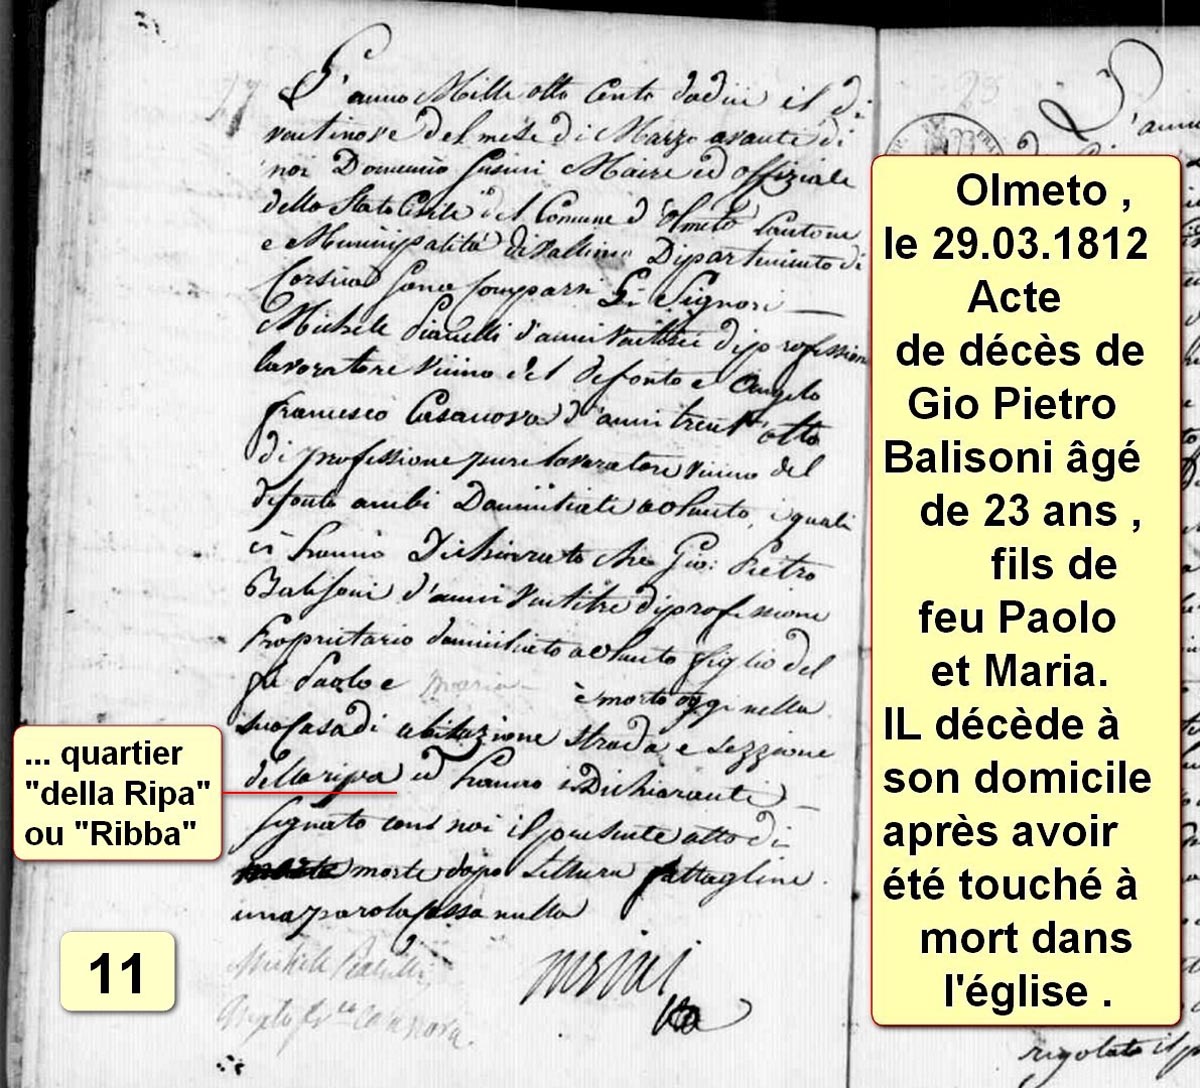 L'anno Mille otto Cento dodici il dì
ventinove del mese di Marzo avante di
noi Domenico Maire ed offiziale
dello Stato Civile del Comune d'Olmeto Cantone
e Municipalità di Dipartimento di
Corsica Sono Comparsi Li Signori
Michele d'anni di professione
lavoratore vicino del defonto e Angelo
Francesco Casanova d'anni trent'otto
di professione pure lavoratore vicino del
defonto ambi Domiciliati a Olmeto, i quali
ci hanno Dichiarato che Gio: Pietro
Balisoni d'anni Ventitre di professione
Proprietario domiciliato a Olmeto figlio del
fù Paolo e Maria è morto oggi nella
sua Casa di abitazione strada e sezzione
della ripa ed hanno i Dichiaranti
segnato con noi il presente atto di
morte dopo Lettura fattagline
una parola cassa nulla
Michele
Angelo Fr.co Casanova
Olmeto ,
le 29.03.1812
Acte
de décès de
Gio Pietro
Balisoni âgé
de 23 ans ,
fils de
feu Paolo
et Maria.
IL décède à
son domicile
après avoir
été touché à
mort dans
l'église .
... quartier
"della Ripa"
ou "Ribba"
11